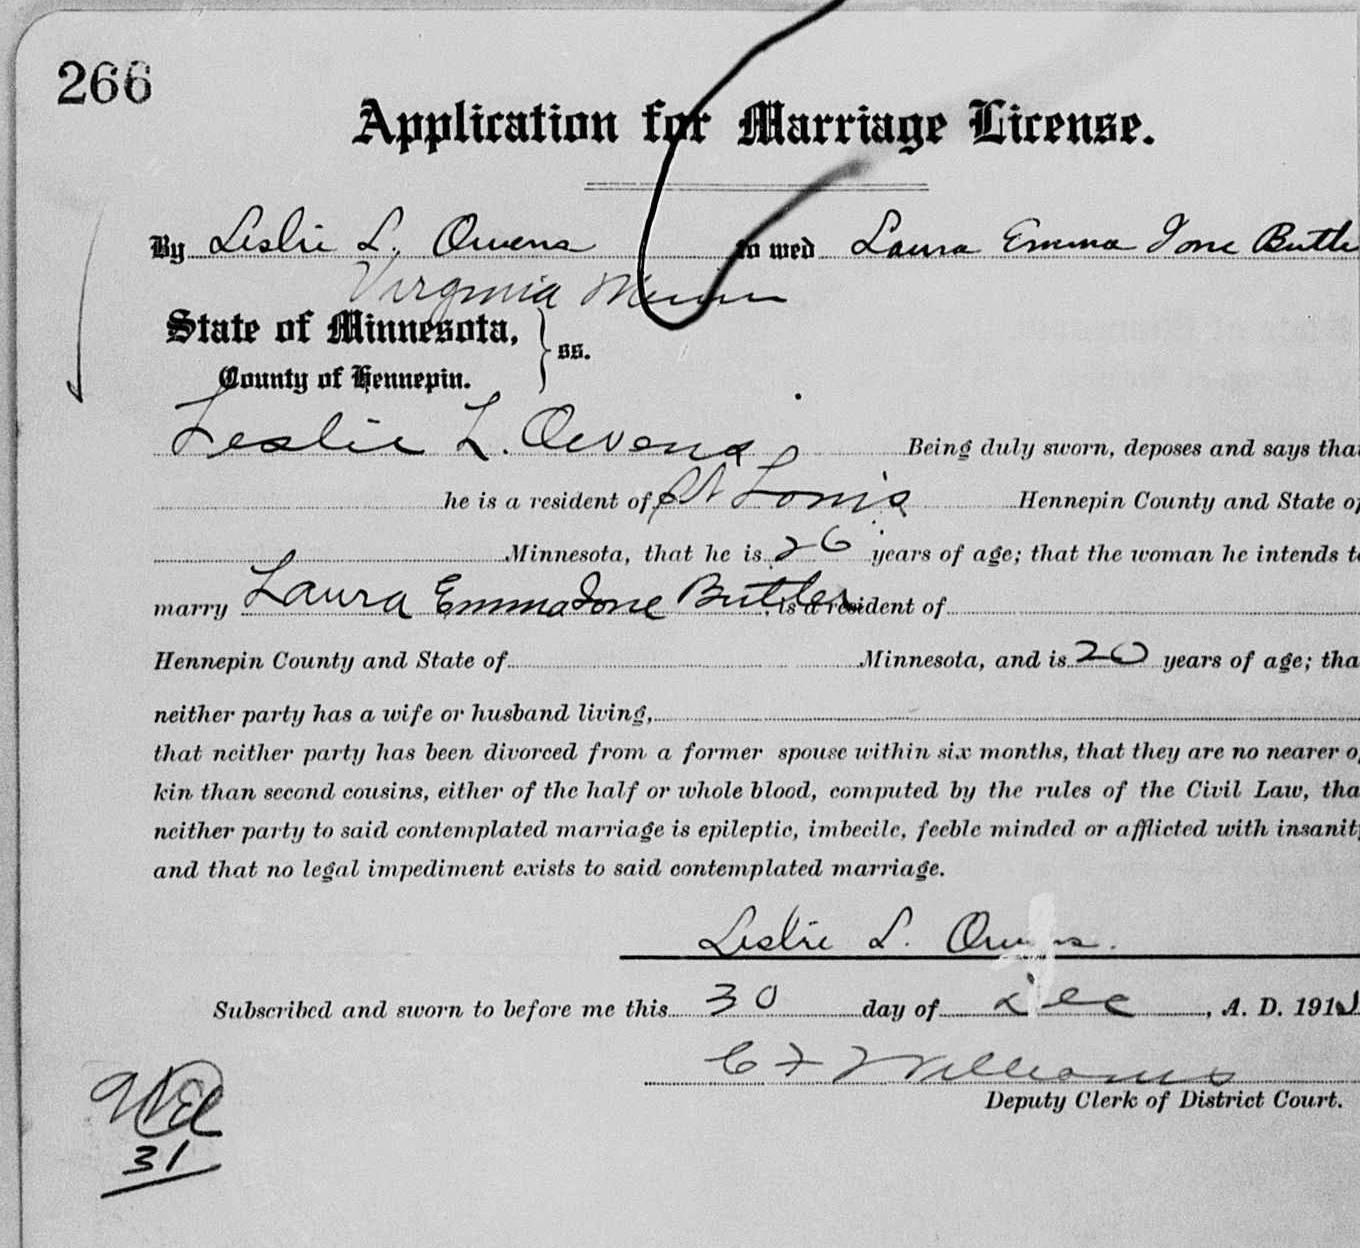 266
Application for Marriage License.
By Leslie L. Owens to wed Laura Emma Ione Butle
Virginia Minn
State of Minnesota,
ss.
County of Hennepin.
Leslie L. Owens Being duly sworn, deposes and says that
he is a resident of St Louis Hennepin County and State of
Minnesota, that he is 26 years of age; that the woman he intends to
marry Laura Emma Ione Butler is a resident of
Hennepin County and State of Minnesota, and is 20 years of age; tha
neither party has a wife or husband living,
that neither party has been divorced from a former spouse within six months, that they are no nearer of
kin than second cousins, either of the half or whole blood, computed by the rules of the Civil Law, tha
neither party to said contemplated marriage is epileptic, imbecile, feeble minded or afflicted with insanity
and that no legal impediment exists to said contemplated marriage.
Leslie L. Owens.
Subscribed and sworn to before me this 30 day of Dec, A. D. 191
C F Williams
Deputy Clerk of District Court.
31